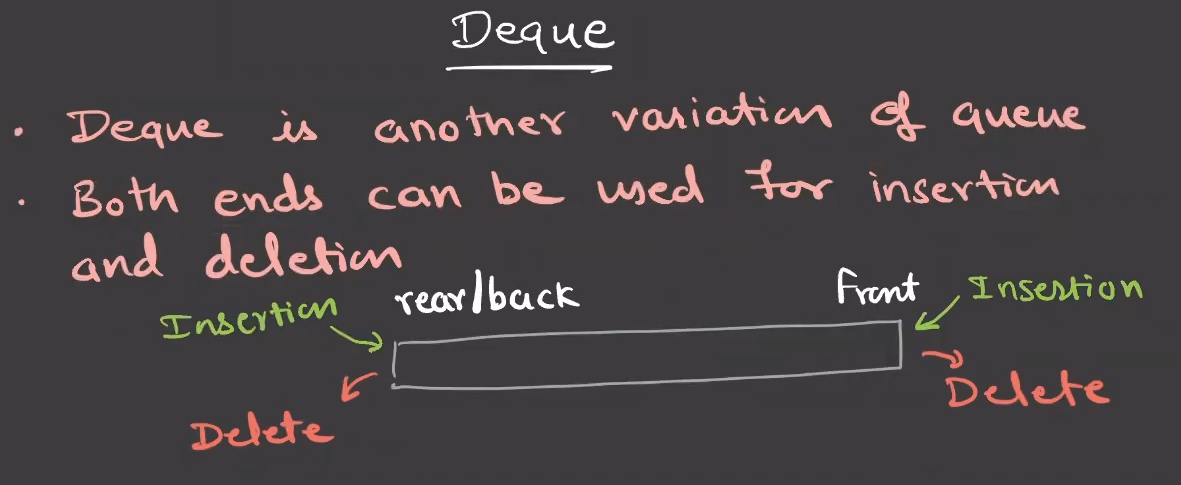 Deque
• Deque is another variation of queue
• Both ends can be used for insertion
and deletion
Insertion rear/back Front Insertion
Delete Delete